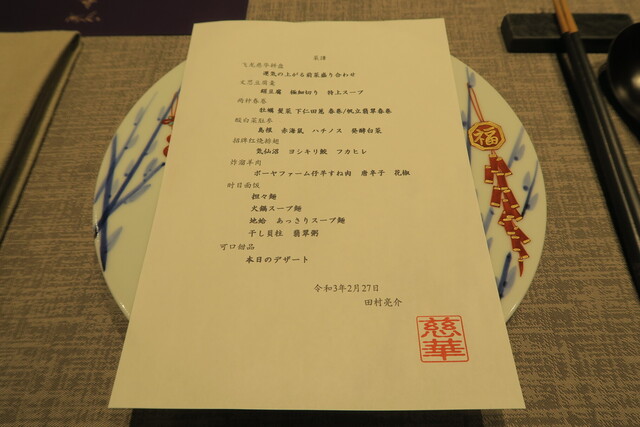 運気の上がる前菜盛り合わせ
文思豆腐羹
絹豆腐 極細切り 特上スープ
両种春巻
牡蠣 髪菜 下仁田葱 春巻/帆立翡翠春巻
酸白菜駐亭
島根 赤海鼠 ハチノス 発酵白菜
招牌红烧排翅
気仙沼 ヨシキリ鮫 フカヒレ
炸溜羊肉
ボーヤファーム仔羊すね肉 唐辛子 花椒
时日面飯
担々麺
火鍋スープ麺
地蛤 あっさりスープ麺
干し貝柱 翡翠粥
可口甜品
本日のデザート
令和3年2月27日
田村亮介
慈華
福